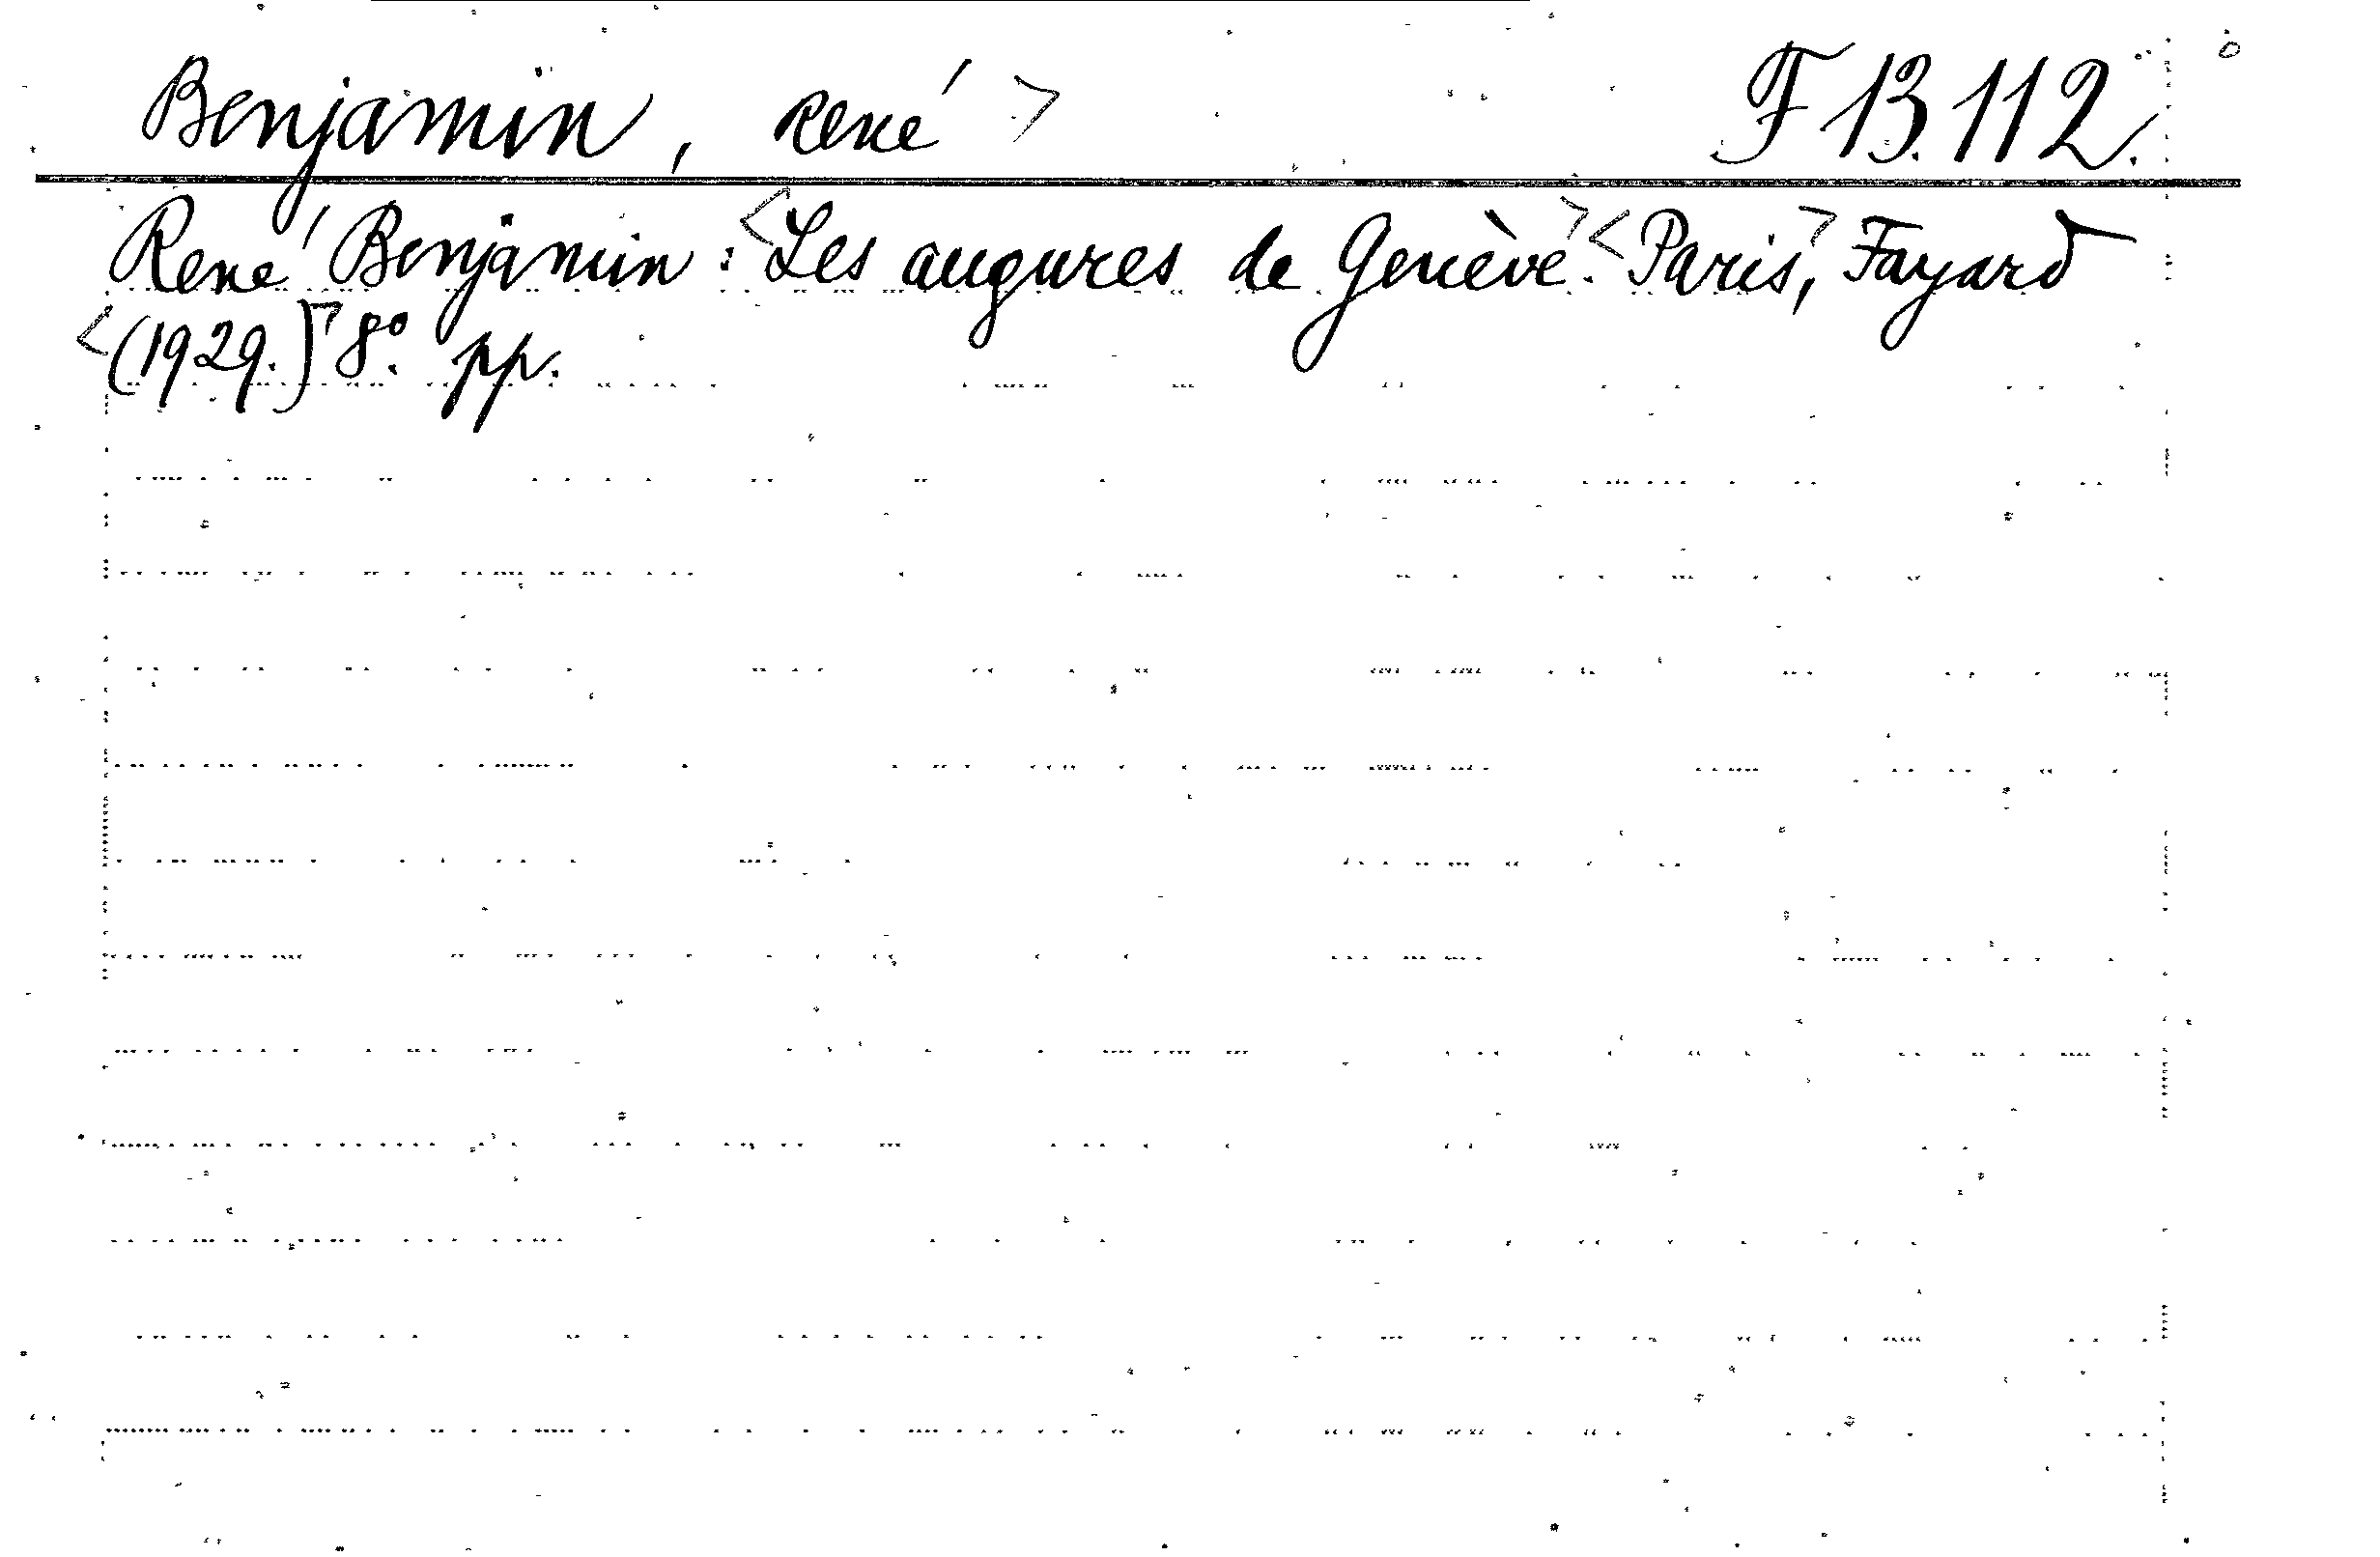 Benjamin, René > F 13.112.
René Benjamin: <Les augures de Genève.> <Paris>, Fayard
<(1929.)> 8°. pp.